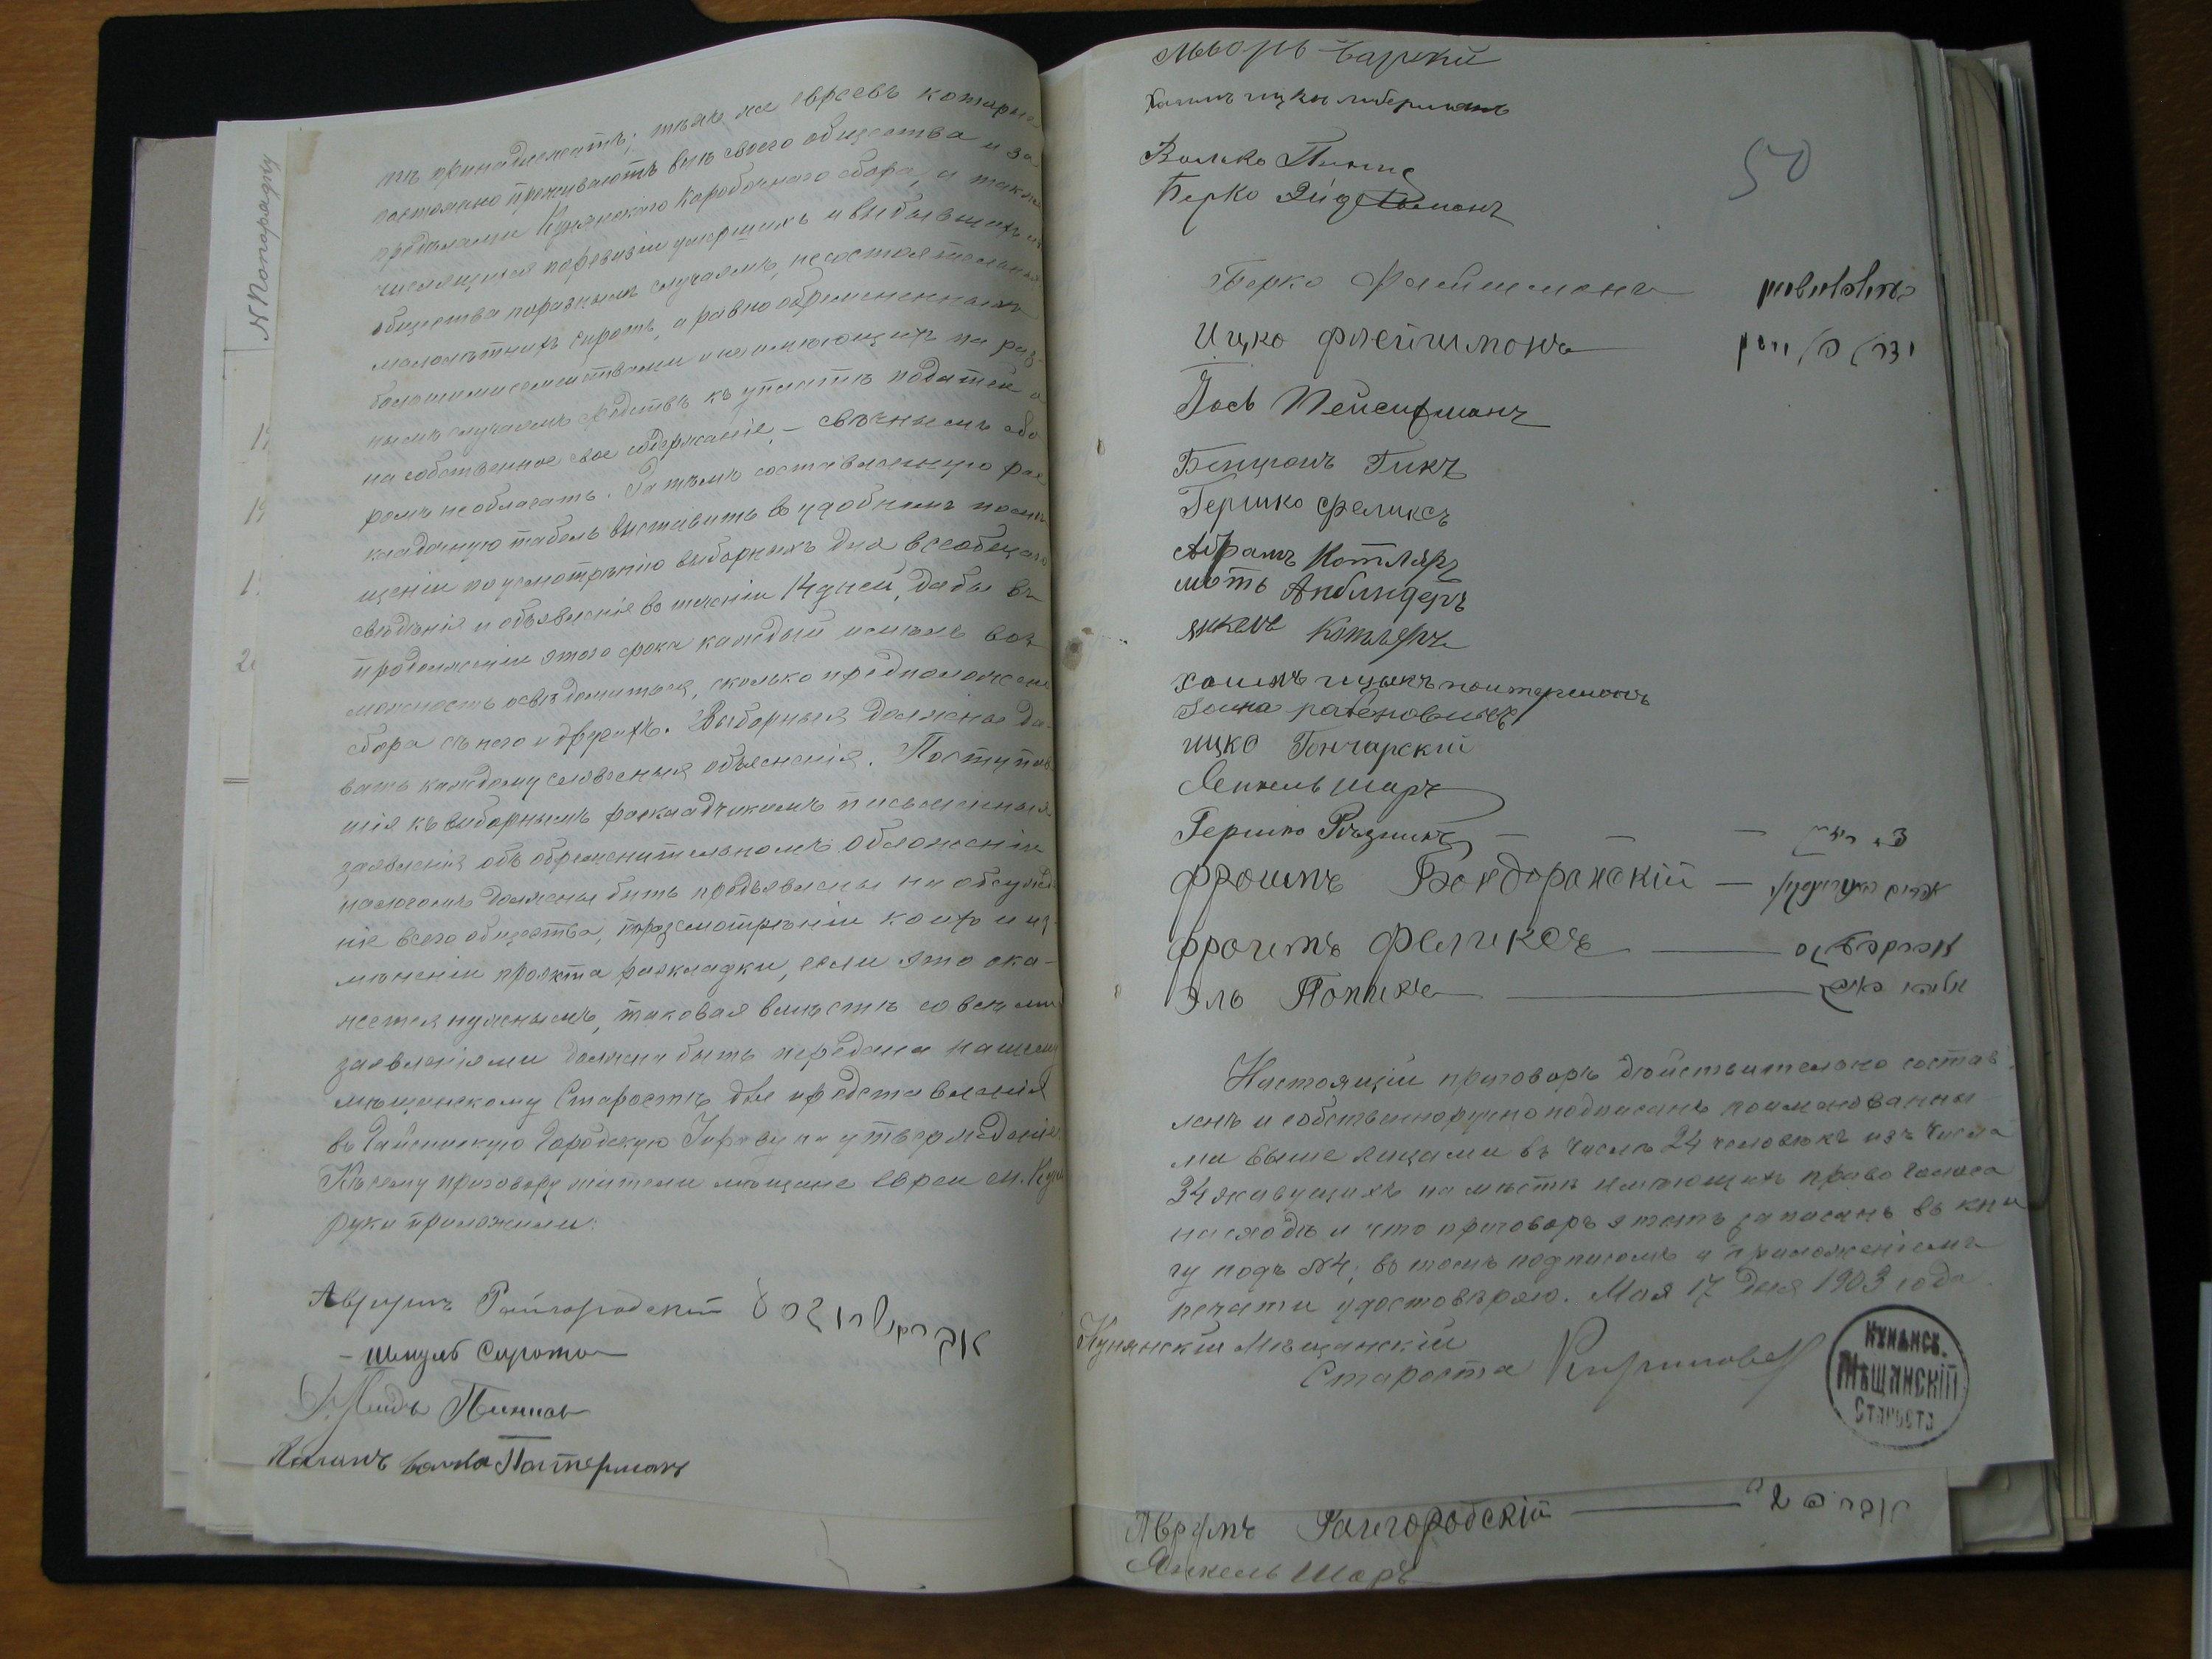 № Попорядку
имъ принадлежатъ; такъ же евреевъ которые
постоянно проживаютъ внѣ своего общества и за
предѣлами Кунянскаго Коробочнаго сбора, а также
числящихся по ревизіи умершихъ и выбывшихъ изъ
общества по разнымъ случаямъ, несостоятельныхъ
малолѣтнихъ сиротъ, а равно обремененныхъ
большими семействами и не имѣющихъ по раз-
нымъ случаямъ средствъ къ уплатѣ податей и
на собственное свое содержаніе, – свѣчнымъ сбо-
ромъ не облагать. Затѣмъ составленную рас-
кладочную табель выставить въ удобномъ помѣ-
щеніи по усмотрѣнію выборныхъ для всеобщаго
свѣдѣнія и объявленія въ теченіи 14 дней, дабы въ
продолженіи этого срока каждый имѣлъ воз-
можность освѣдомиться, сколько предположено
сбора съ него и другихъ. Выборныя должны да-
вать каждому словесныя объясненія. Поступив-
шія къ выборнымъ раскладчикамъ письменныя
заявленія объ обременительномъ обложеніи
налогомъ должны быть предъявлены на обсужде-
ніе всего общества, при разсмотрѣніи коихъ и из-
мѣненіи проэкта раскладки, если это ока-
жется нужнымъ, таковая вмѣстѣ со всѣми
заявленіями должна быть передана нашему
мѣщанскому Старостѣ для представленія
въ Гайсинскую Городскую Управу на утвержденіе
Къ сему приговору жители мѣщане евреи м. Куны
руки приложили:
Аврумъ Райгородскій
– Шмуль Сирота
Лейдъ Пинисъ
Хаимъ Волько Потерманъ
50
Мвορъ Барскій
Хаимъ Ицко Либерманъ
Волько Пинис
Берко Эйдельманъ
Берко Флейшманъ
Ицко Флейшманъ
Іось Пейсихманъ
Бенционъ Гикъ
Гершко Феликсъ
Абрамъ Котляръ
Моть Анблиндеръ
Янкель Котляръ
Хаимъ Ицыкъ Поитерманъ
Іоина Рабеновичъ
Ицко Гончарскій
Янкель Шаръ
Гершко Рѣзникъ
Фроимъ Бондоранскій –
Фроимъ Феликсъ
Эль Попикъ
Настоящій приговоръ дѣйствительно состав-
ленъ и собственноручно подписанъ поименованны-
ми выше лицами въ числѣ 24 человѣкъ изъ числа
34 живущихъ на мѣстѣ имѣющихъ право голоса
на сходѣ и что приговоръ этотъ записанъ въ кни-
гу подъ №4, въ томъ подписомъ и приложеніемъ
печати удостовѣряю. Мая 17 дня 1903 года.
Кунянскій Мѣщанскій
Староста Кириловъ
КУНЯНСК.
МѢЩАНСКІЙ
Староста
Аврумъ Райгородскій
Янкель Шаръ